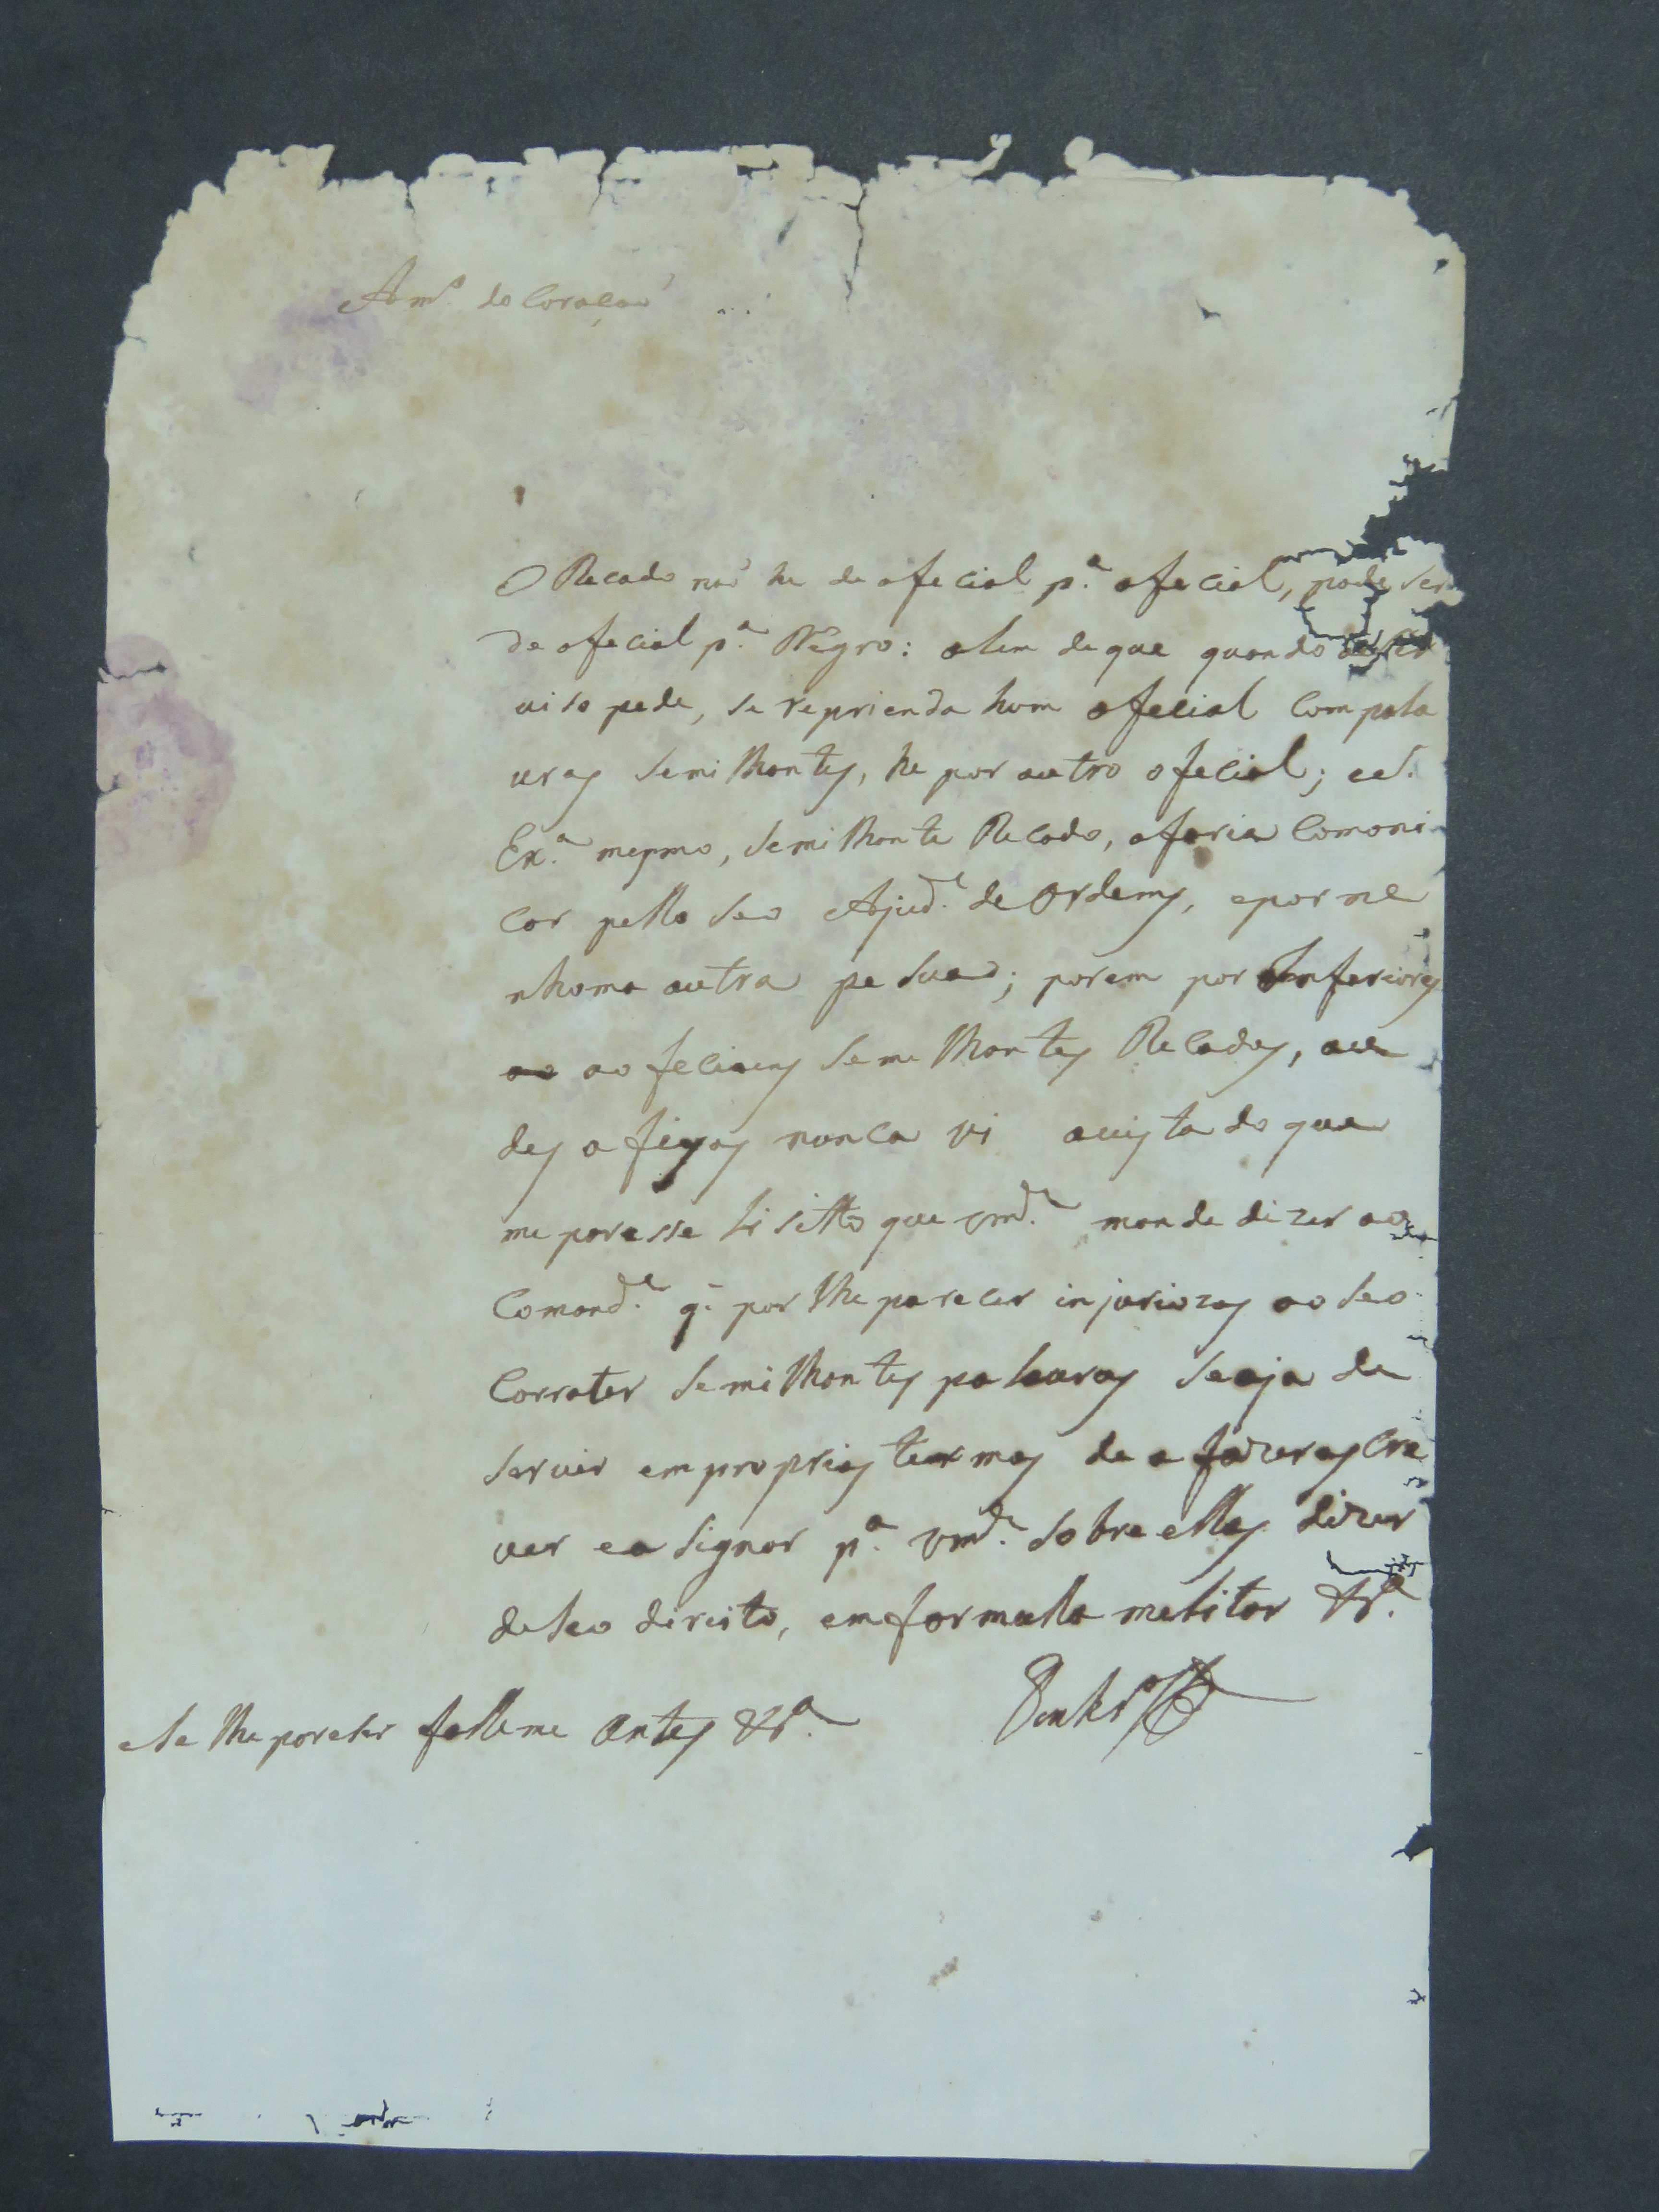 Am.º do Coraçaõ
O Recado naõ he de ofecial p.ª ofecial, pode ser
de ofecial p.ª Negro: alem de que quando o ser
uiso pede, se reprienda hum ofecial Com pala
uras semilhantes, he por outro ofecial; e S.
Ex.ª mesmo, semilhante Recado, o faria Comoni
car pello seo Ajud.e de Ordems, e por ne
nhoma outra pesua; porem por Inferiores
ao ofeciaes semilhantes Recados, ou
des a fisas nunca vi avista do que
me parese lisitto que vm.ce mande dizer ao
Comand.e q̃ por lhe parecer injuriozas ao seo
Carrater semilhantes palauras se aja de
seruir em proprios termos de a fazer as cre
uer e a signar p.ª vm.ce sobre ellas dizer
de seo direito, em formulla melitar &.ª
e se lhe pareser falleme Antes &.ª